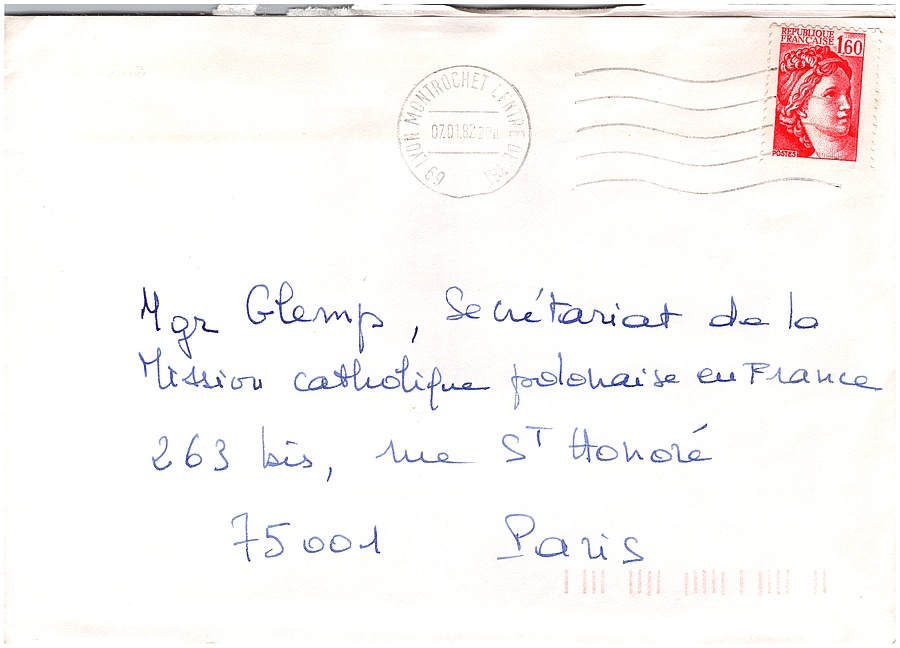 REPUBLIQUE
FRANÇAISE 1,60
POSTES
69 LYON MONTROCHET CENTRE DE TRI
07.01.82
Mgr Glemp, Secrétariat de la
Mission catholique polonaise en France
263 bis, rue ST Honoré
75001 Paris